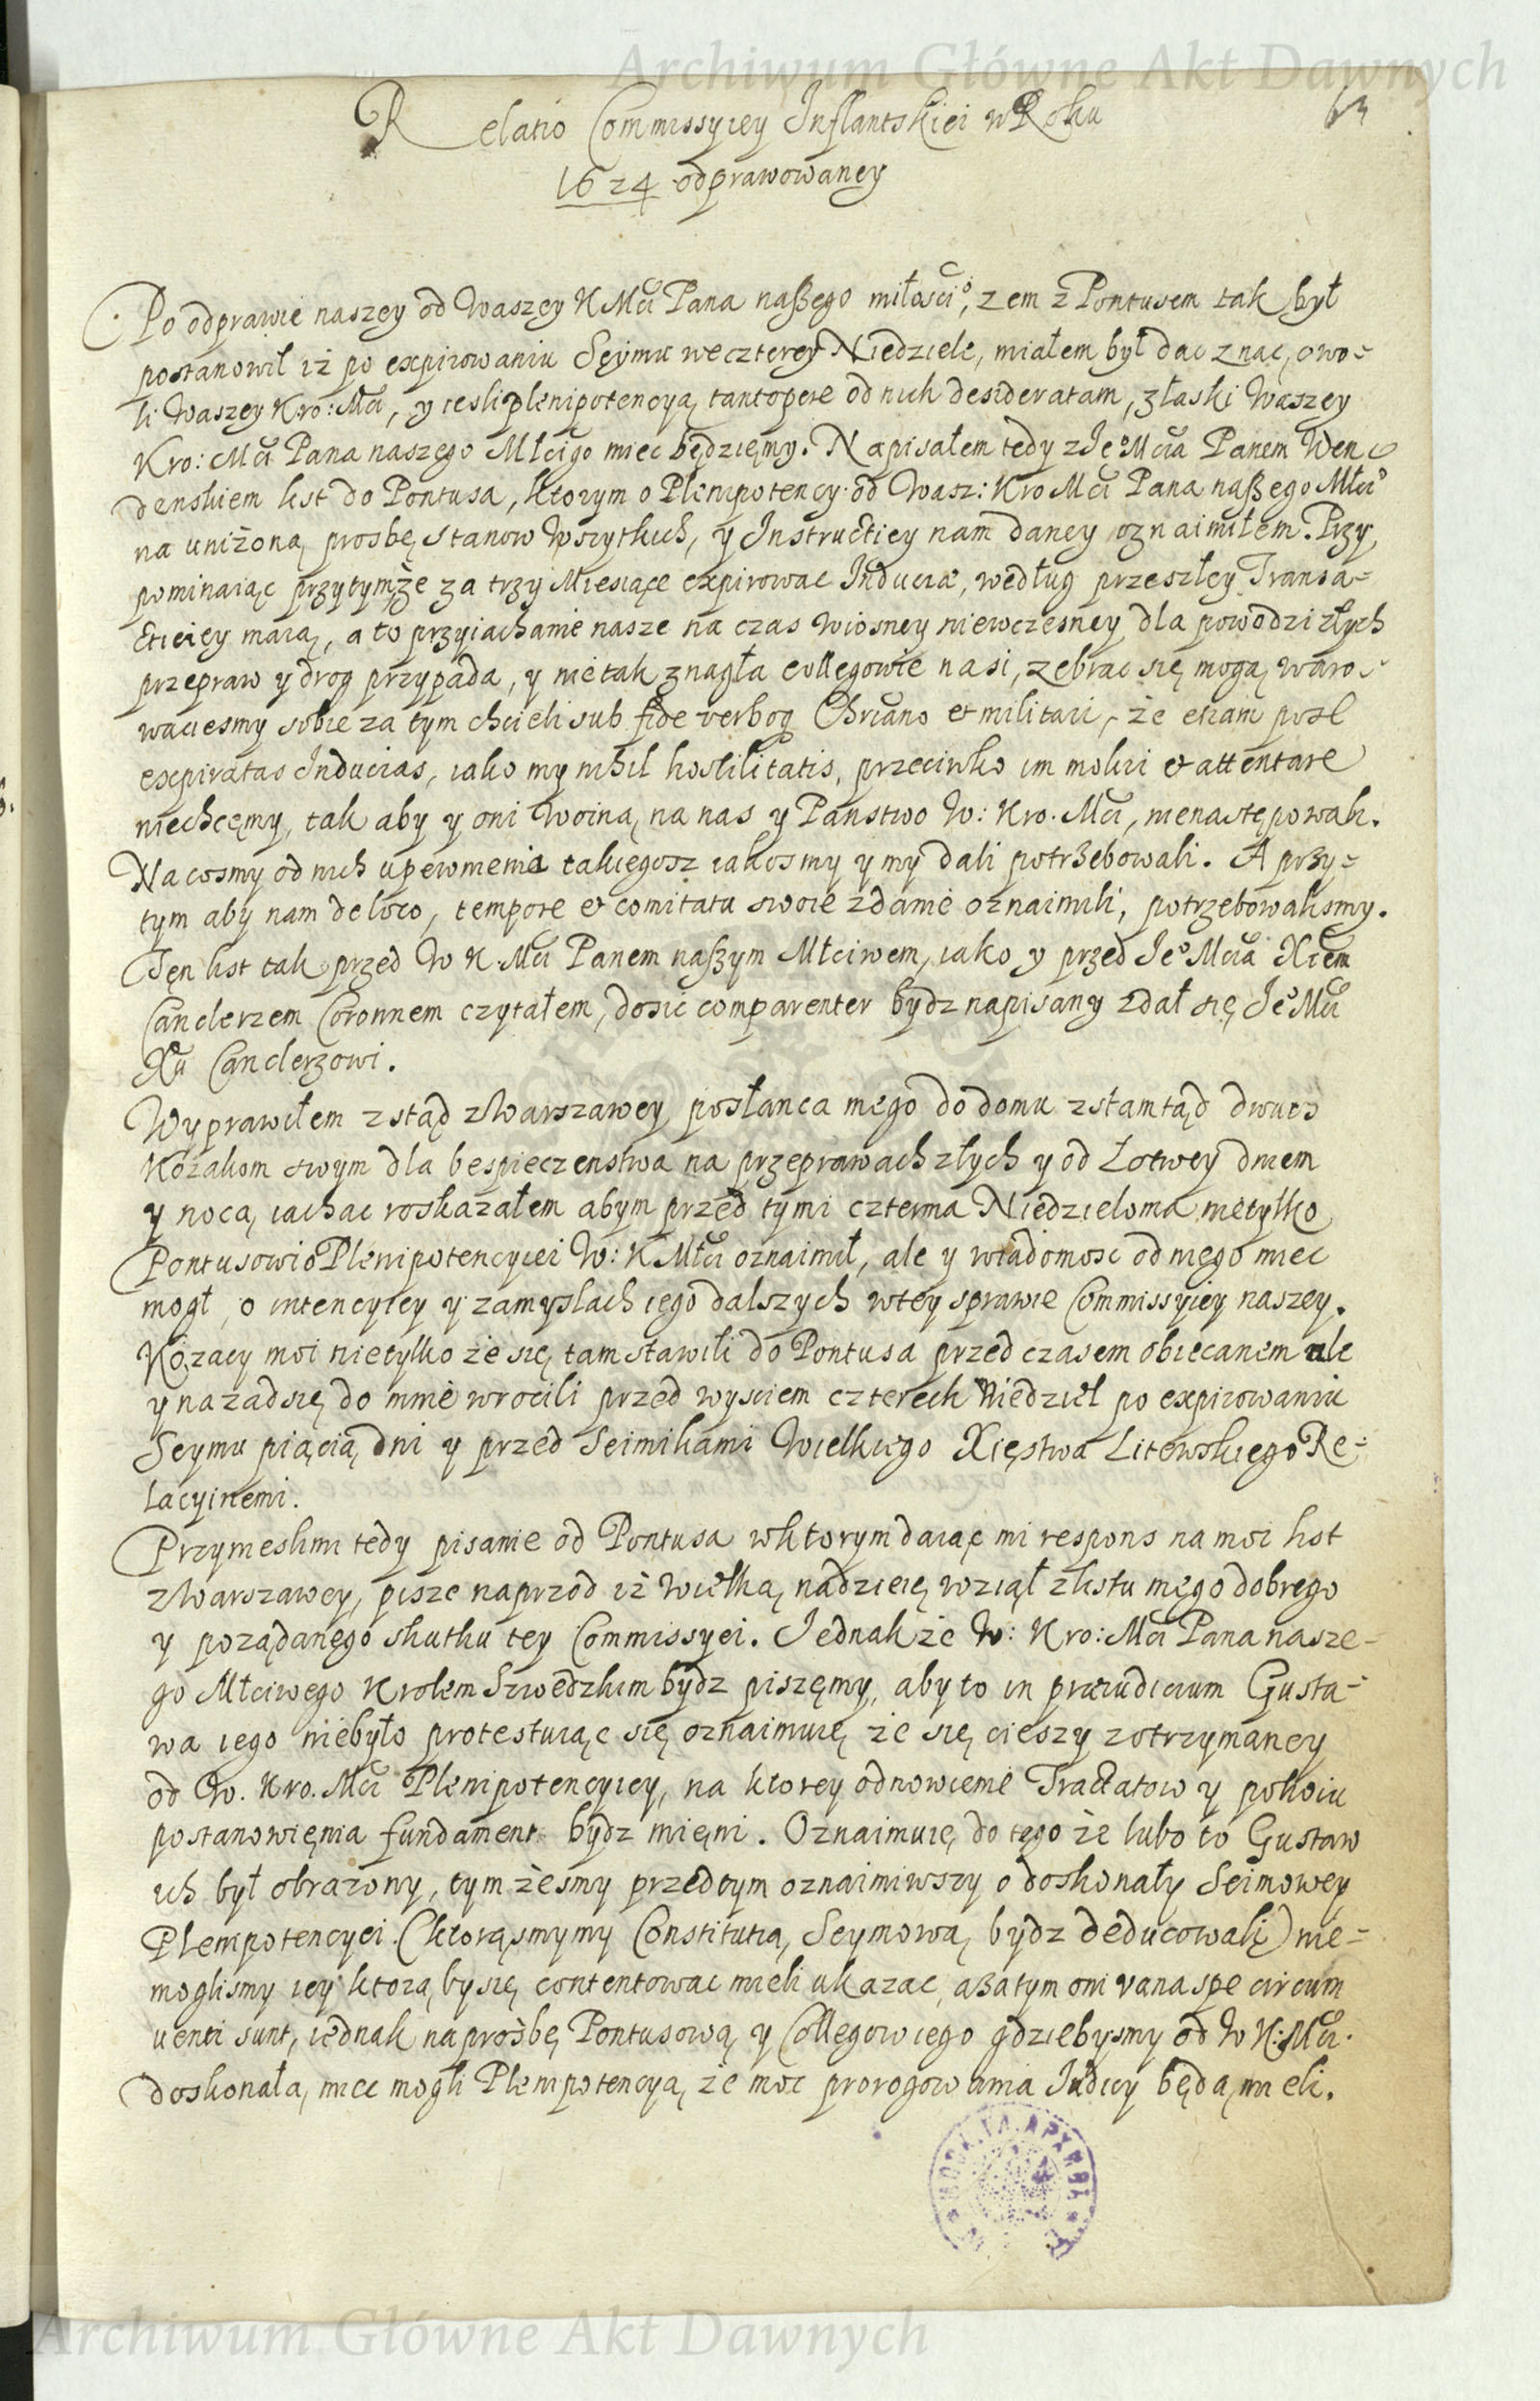 Archiwum Główne Akt Dawnych
63
Relatio Commissyiey Inflantskiei w Roku
1624 odprawowaney
Po odprawie naszey od Waszey K Mci Pana naßego miłosci°, z em z Pontusem tak był
postanowił iż po expirowaniu Seymu weczterey Niedziele, miałem był dac znac, o wo-
li Waszey Kro: Mci, y iesli plenipotencyą tantopere od nich desideratam, z łaski Waszey
Kro: Mci Pana naszego Młcigo miec będziemy. Napisałem tedy z Je° Mcią Panem Wen
denskiem list do Pontusa, ktorym o Plenipotency od Wasz: Kro Mci Pana naßego Młci°
na uniżoną prosbę Stanow Wszytkich, y Instructiey nam daney oznaimiłem. Przy
pominaiąc przytym że za trzy Miesiące expirowac Induciæ, według przeszłey Transa-
ctieiey maią, a to przyiachanie nasze na czas wiosney niewczesney dla powodzi złych
przepraw y drog przypada, y nie tak z nagła collegowie nasi, zebrac się mogą, waro-
wacesmy sobie za tym chcieli sub fide verboq Chriano et militari, że etiam post
expiratas Inducias, iako my nihil hostilitatis, przeciwko im moliri et attentare
niechcęmy, tak aby y oni Woiną na nas y Panstwo W: Kro. Mci, nienastępowali.
Na cosmy od nich upewnienia takiegosz iakosmy y my dali potrzebowali. A przy-
tym aby nam de loco, tempore et comitatu swoie zdanie oznaimili, potrzebowalismy.
Ten list tak przed W K. Mci Panem naßzym Młciwem, iako y przed Je° Mcią Xiem
Canclerzem Coronnem czytałem, dosic comparenter bydz napisany zdał się Je° Mci
Xu Canclerzowi.
Wyprawiłem z stąd z Warszawey posłanca mego do domu z stamtąd dwuch
Kozakom swym dla bespieczenstwa na przeprawach złych y od Łotwey dniem
y nocą iachac roskazałem abym przed tymi czterma Niedzieloma nietylko
Pontusowi o Plenipotencyiei W: K Młci oznaimił, ale y wiadomosc od niego miec
mogł, o intencyiey y zamysłach iego dalszych w tey sprawie Commissyiey naszey.
Kozacy moi nietylko że się tam stawili do Pontusa przed czasem obiecanem ale
y nazad się do mnie wrocili przed wysciem czterech Niedziel po expirowaniu
Seymu piącią dni y przed Seimikami Wielkiego Xięstwa Litewskiego Re-
lacyinemi.
Przyniesli mi tedy pisanie od Pontusa w ktorym daiąc mi respons na moi list
z Warszawey, pisze naprzod iż wielką nadzieię wziął z listu mego dobrego
y poządanego skutku tey Commissyei. Jednak że W: Kro: Mci Pana nasze-
go Młciwego Krolem Szwedzkim bydz piszęmy, aby to in præiudicium Gusta-
wa iego niebyło protestuiąc się oznaimuię że się cieszy z otrzymaney
od W. Kro. Mci Plenipotencyiey, na ktorey odnowienie Tractatow y pokoiu
postanowięnia fundament bydz mięni. Oznaimuię do tego że lubo to Gustaw
ich był obrażony, tym żesmy przedtym oznaimiwszy o doskonały Seimowey
Plenipotencyei (ktorąsmy my Constitutią Seymową bydz deducowali) nie-
moglismy iey ktorą by się contentowac mieli ukazac, a za tym oni vana spe circum
uenti sunt, iednak na prośbę Pontusową y Collegow iego gdziebysmy od W K: Mci
doskonałą miec mogli Plenipotencyą że moc prorogowania Iducy będą mieli.
Archiwum Główne Akt Dawnych